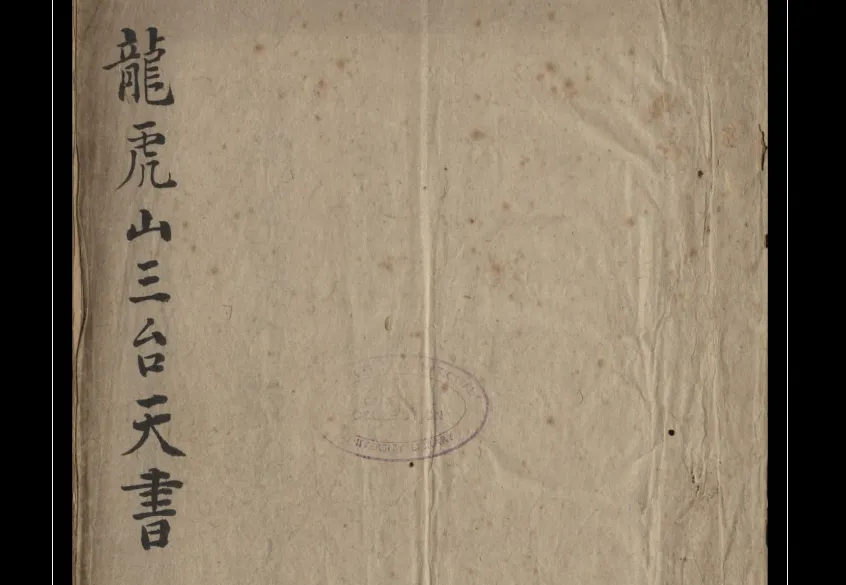 龍虎山三台天書